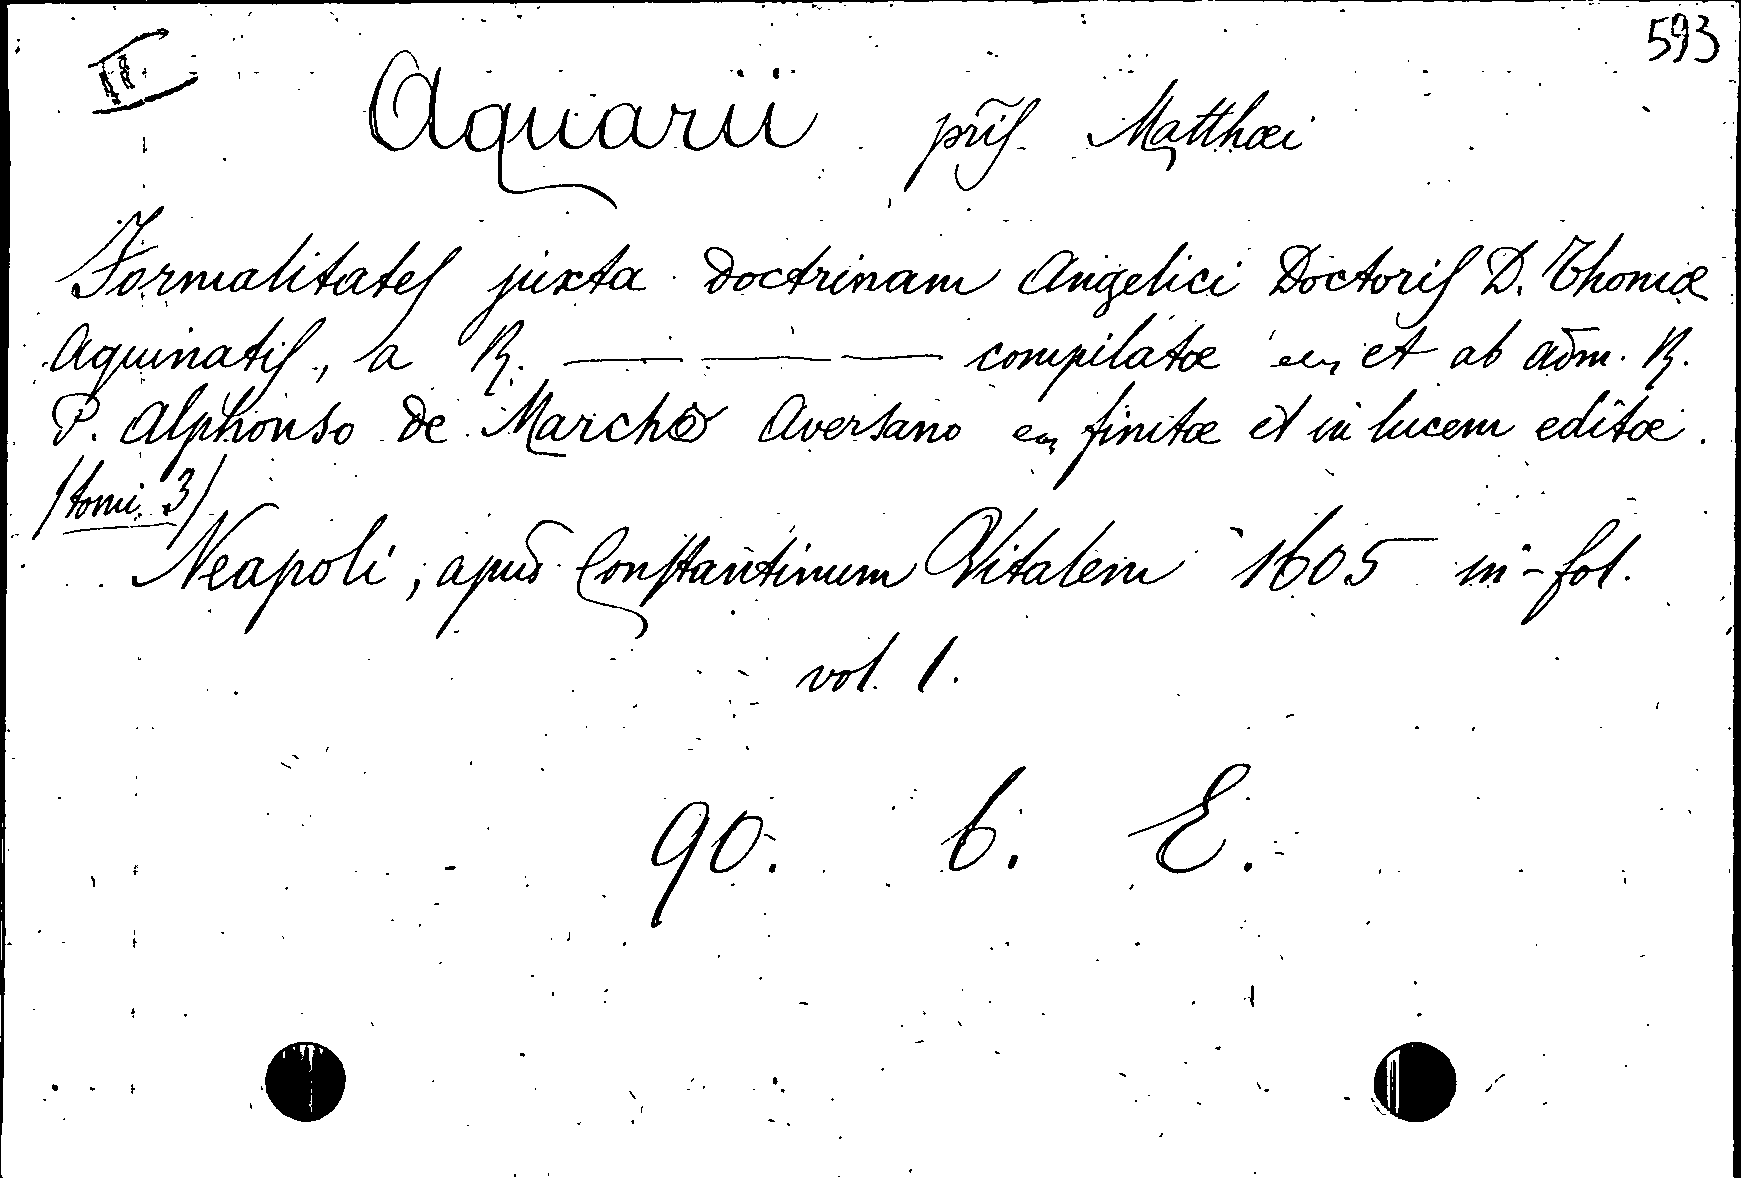 593
II.
Aquarii pr̃is. Matthæi
Formalitates juxta doctrinam Angelici Doctoris D. Thomæ
Aquinatis, a R. — — — compilatæ et ab adm. R.
P. Alphonso de Marcho Aversano finitæ et in lucem editæ.
/tomi 3/
Neapoli, apud Constantinum Vitalem 1605 in-fol.
vol. 1.
90. b. E.